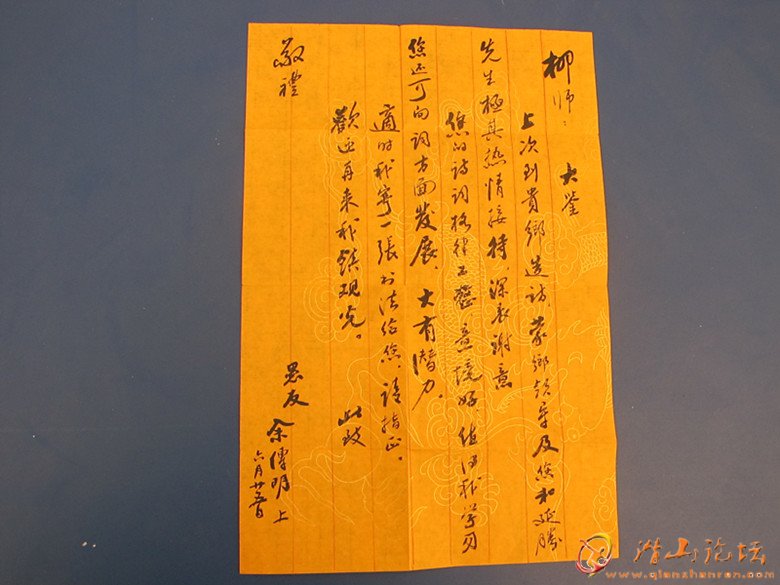 柳师：
大鉴
上次到贵鄉造访，蒙鄉领导及您和延勝
先生極其热情接待，深表谢意
您的诗词格律工整，意境好，值得我学习
您还可向词方面发展，大有潜力。
適时我寄一張书法给您，请指正。
歡迎再来我镇观光。 此致
敬禮
愚友 余傳明 上
六月廿五日
潜山论坛
www.qianshanren.com